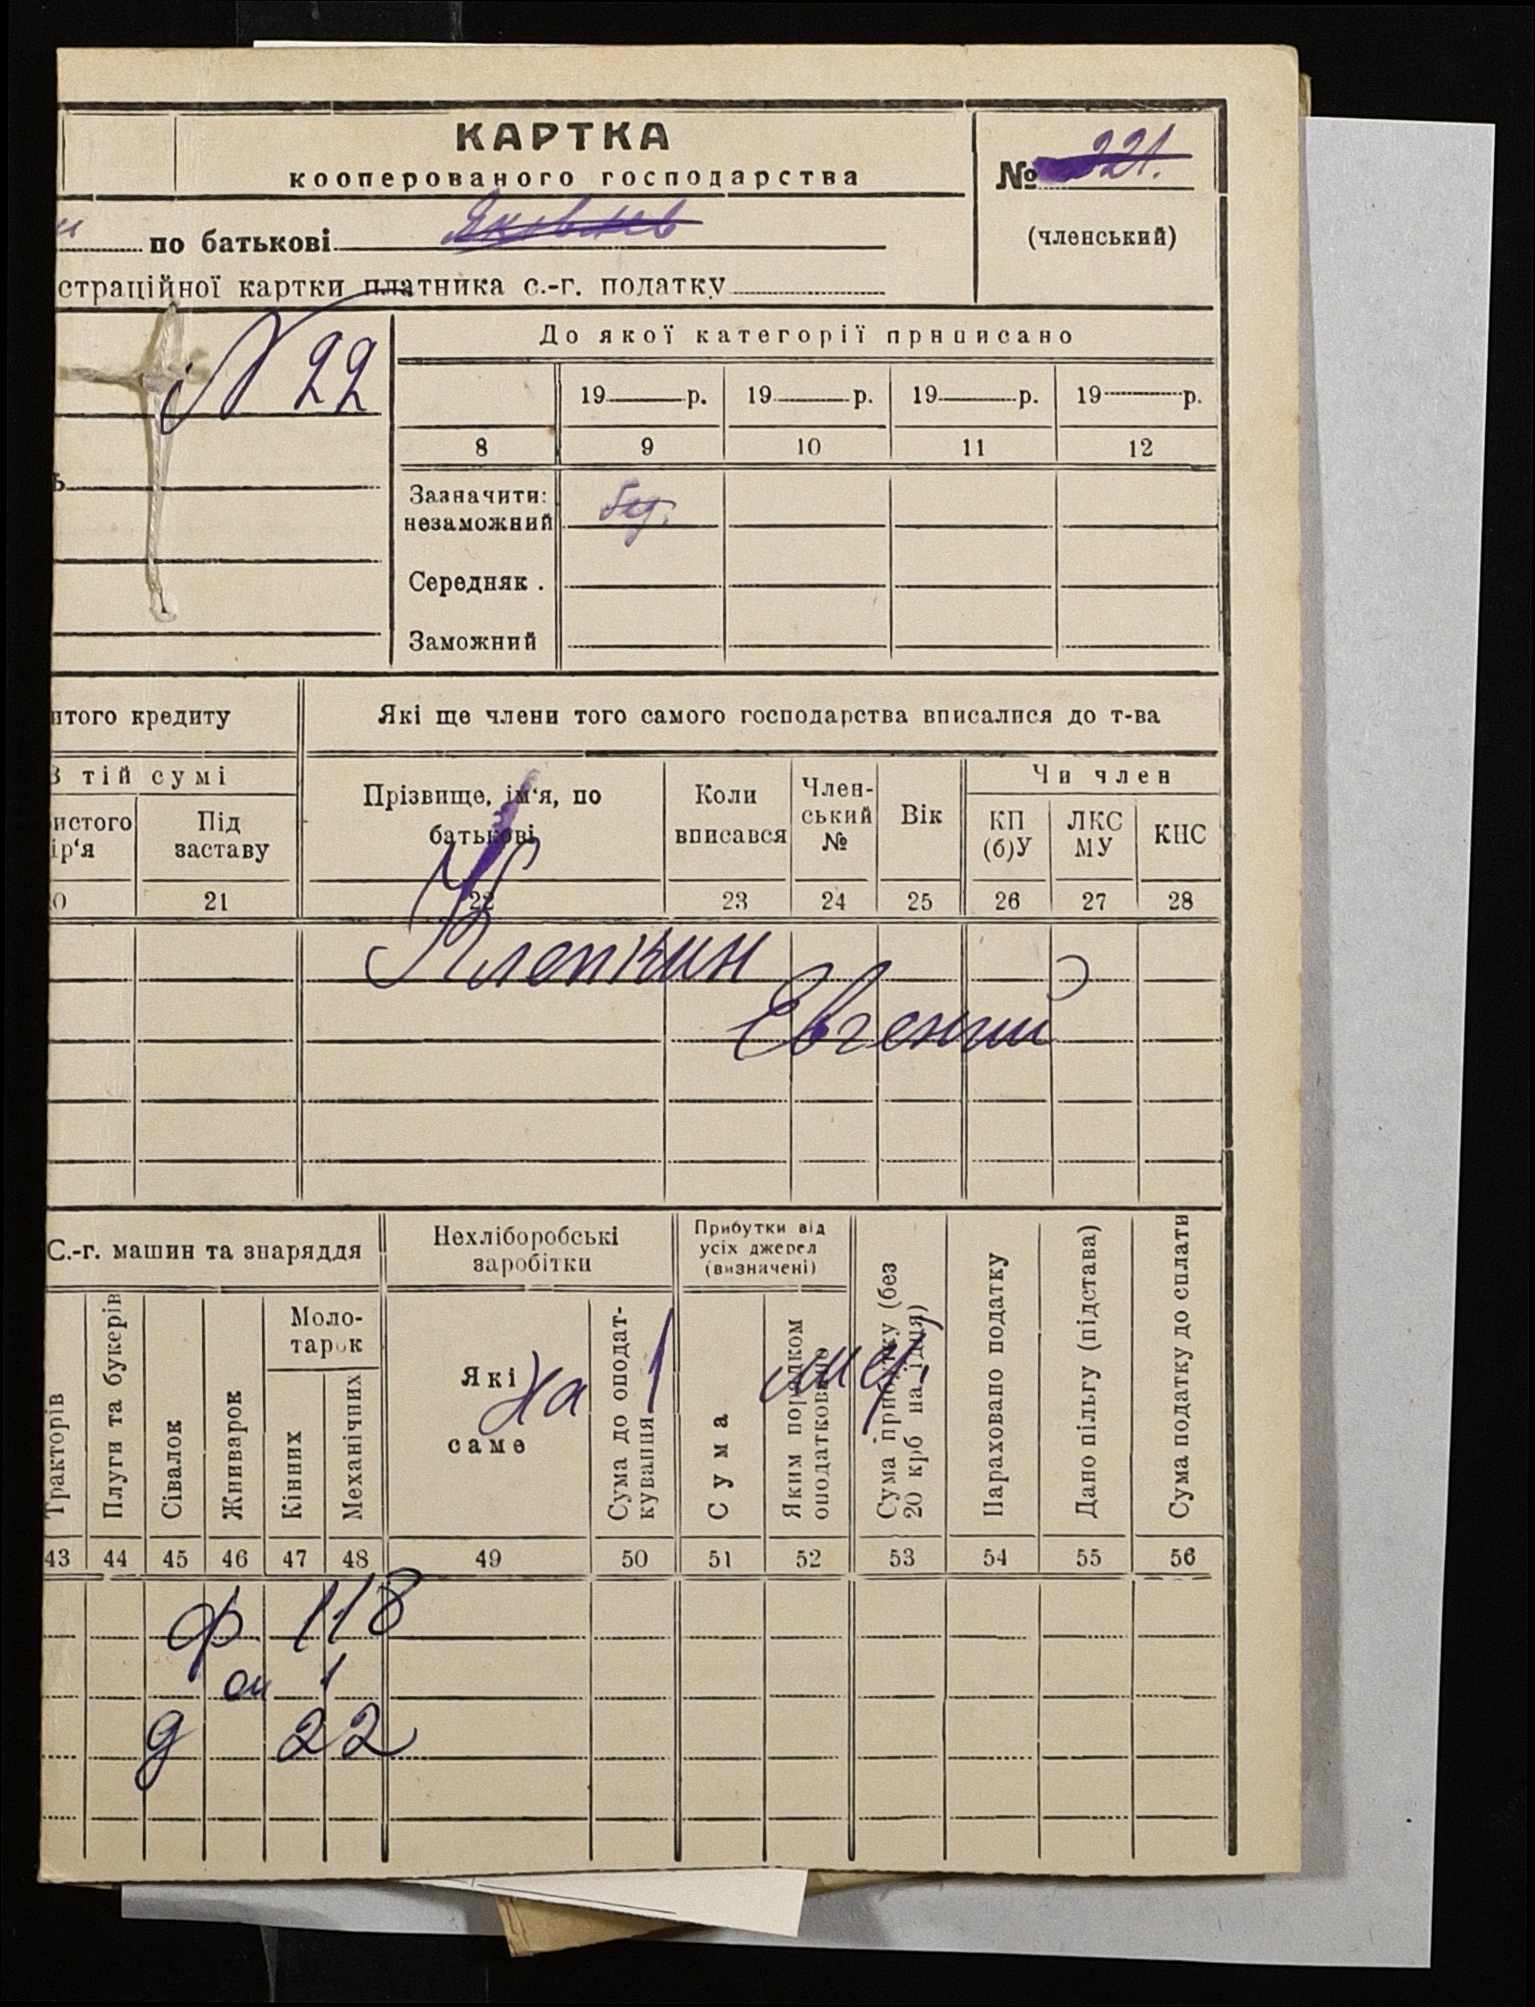 КАРТКА
кооперованого господарства
№ 221.
(членський)
по батькові Яковлев
страційної картки платника с.-г. податку
N 22
До якої категорії приписано
19 р. 19 р. 19 р. 19 р.
8 9 10 11 12
Зазначити:
незаможний
Середняк .
Заможний
итого кредиту
Які ще члени того самого господарства вписалися до т-ва
В тій сумі
истого
ір'я
Під
заставу
Прізвище, ім'я, по
батькові
Коли
вписався
Член-
ський
№
Вік
Чи член
КП
(б)У
ЛКС
МУ
КНС
0 21 22 23 24 25 26 27 28
Клепкин
Евгений
С.-г. машин та знаряддя
Тракторів
Плуги та букерів
Сівалок
Жниварок
Моло-
тарок
Кінних
Механічних
Нехліборобські
заробітки
Які
саме
Сума до оподат-
кування
Прибутки від
усіх джерел
(визначені)
Сума
Яким порядком
оподатковано
Сума прибутку (без
20 крб на їдця)
Нараховано податку
Дано пільгу (підстава)
Сума податку до сплати
на 1
43 44 45 46 47 48 49 50 51 52 53 54 55 56
ф 118
оп 1
д 22